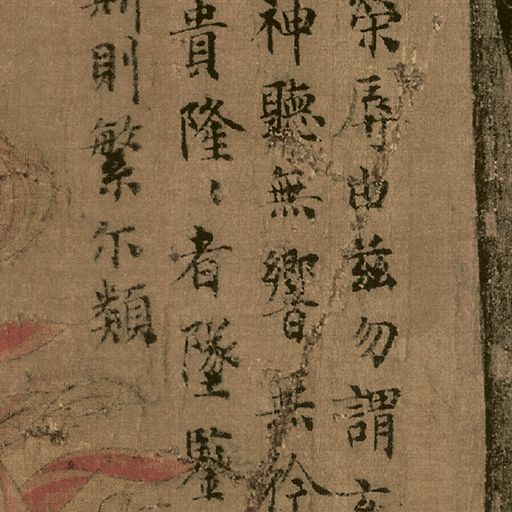 榮辱由茲勿謂玄
神聽無響無矜
貴隆〻者墜鑒
斯則繁尓類